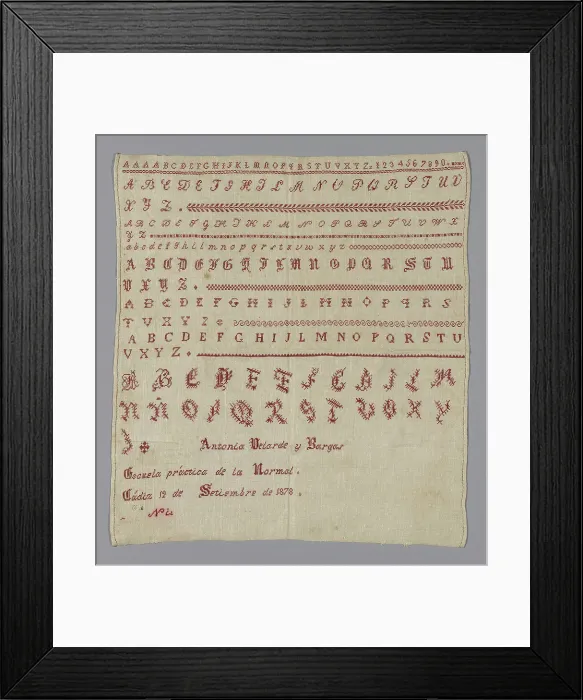 A A A A B C D E F G H I J K L M N O P Q R S T U V X Y Z. 1 2 3 4 5 6 7 8 9 0.
A B C D E F G H I J L M N O P Q R S T U V
X Y Z.
A B C D E F G H I J K L M N O P Q R S T U V W X
Y Z
a b c d e f g h i l m n o p q r s t u v w x y z
A B C D E F G H I J L M N O P Q R S T U
V X Y Z.
A B C D E F G H I J L M N O P Q R S
T V X Y Z
A B C D E F G H I J L M N O P Q R S T U
V X Y Z.
A B C D E F G H I J L M
N Ñ O P Q R S T U V X Y
Z
Antonia Velarde y Bargas
Escuela práctica de la Normal.
Cádiz 12 de Setiembre de 1878.